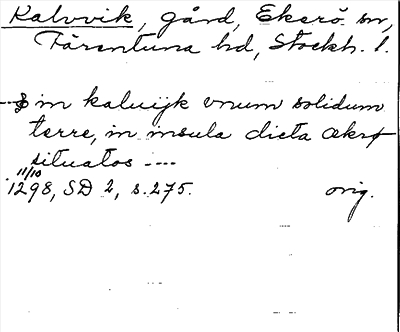 Kalvvik, gård, Ekerö sn,
Färentuna hd, Stockh. l.
--- in kaluijk vnum solidum
terre, in insula dicta Akrø
situatos ----
11/10
1298, SD 2, s. 275. orig.